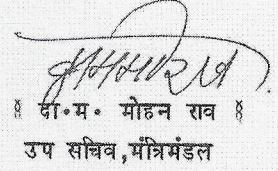 ॥ दा॰म॰ मोहन राव ॥
उप सचिव,मंत्रिमंडल